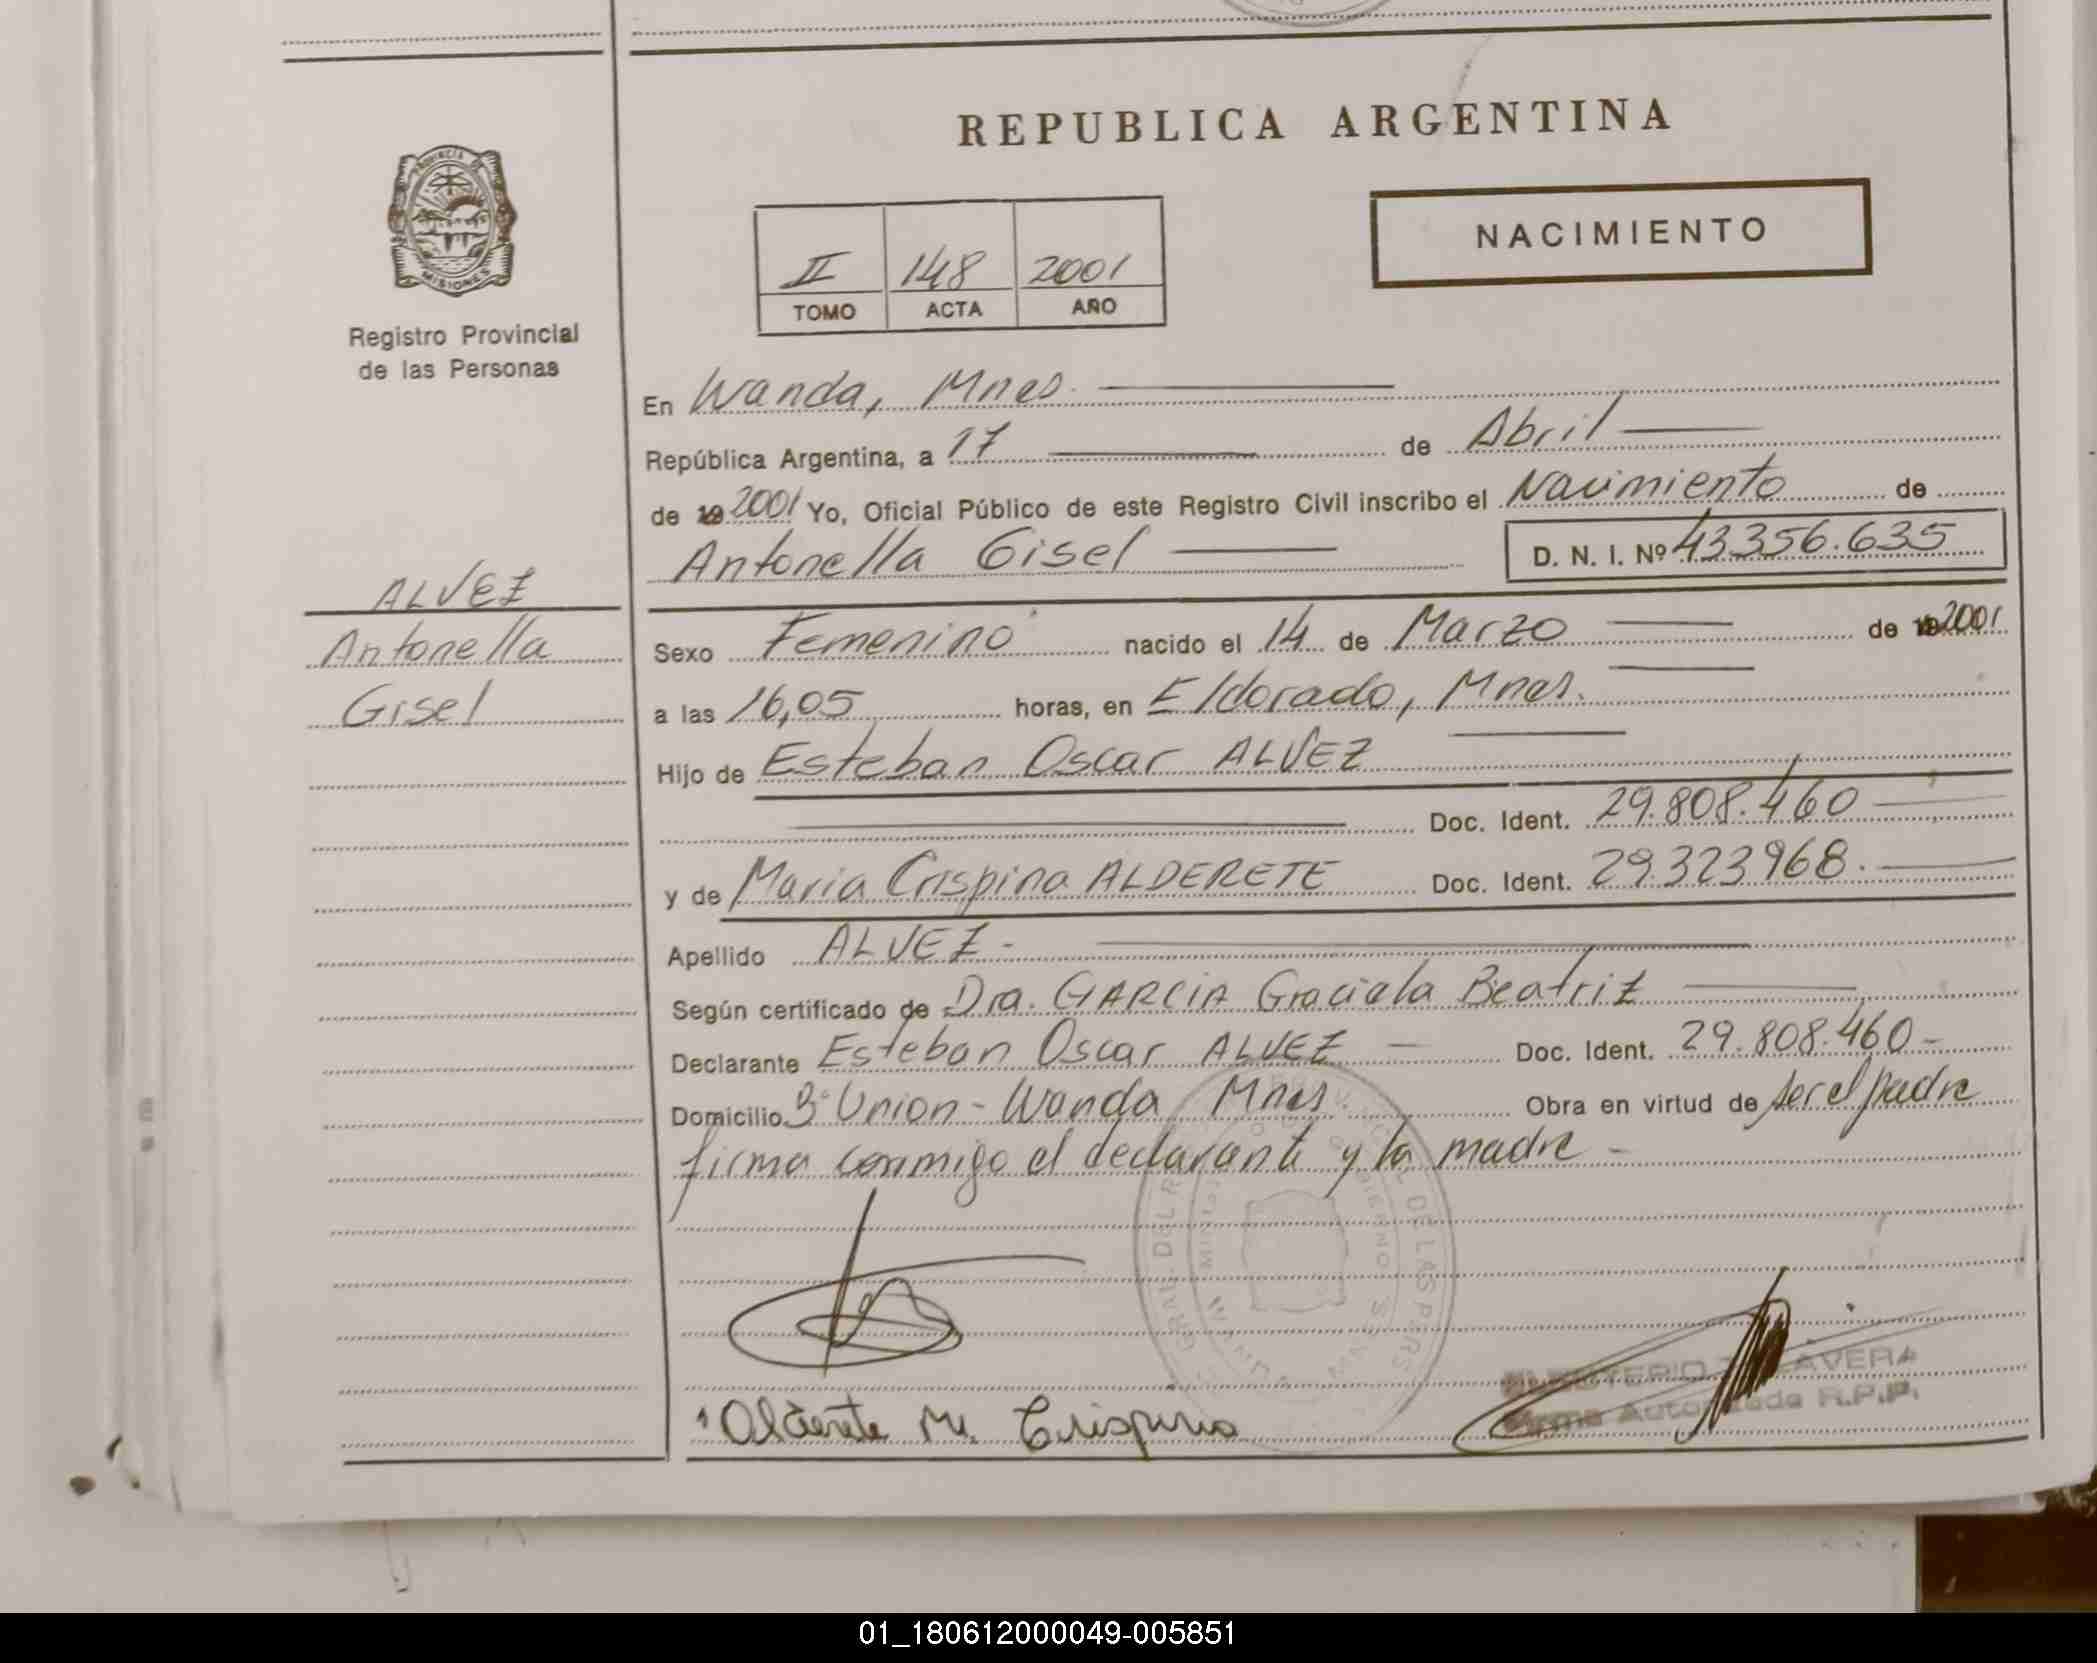 REPUBLICA ARGENTINA
PROVINCIA DE
MISIONES
Registro Provincial
de las Personas
NACIMIENTO
II 148 2001
TOMO ACTA AÑO
En Wanda, Mnes.
República Argentina, a 17 de Abril
de 19 2001 Yo, Oficial Público de este Registro Civil inscribo el Nacimiento de
Antonella Gisel D. N. I. Nº 43.356.635
ALVEZ
Antonella
Gisel
Sexo Femenino nacido el 14 de Marzo de 19 2001
a las 16,05 horas, en Eldorado, Mnes.
Hijo de Esteban Oscar ALVEZ
Doc. Ident. 29.808.460
y de Maria Crispina ALDERETE Doc. Ident. 29.323968.
Apellido ALVEZ-
Según certificado de Dra. GARCIA Graciela Beatriz
Declarante Esteban Oscar ALVEZ - Doc. Ident. 29.808.460-
Domicilio 3º Union - Wanda Mnes. Obra en virtud de ser el padre
firma conmigo el declarante y la madre -
Alderete M. Crispina
Firma Autorizada R.P.P.
01_180612000049-005851